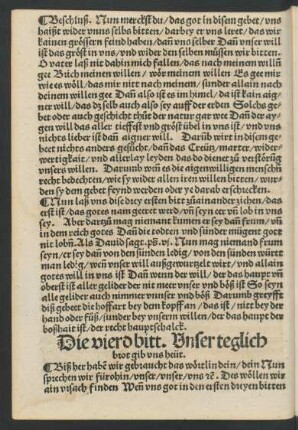 ¶Beschluß. Nun merckst du/das got in disem gebet/vns
haißt wider vnns selbs bitten/darbey er vns leret/das wir
kainen grössern feind haben/dañ vns selber Dañ vnser will
ist das gröst in vns/vnd wider den selben müssen wir bitten.
O vater laß mit dahin mich fallen/das nach meinem willñ
gee Brich meinen willen/wör meinem willen Es gee mir
wie es wöll/das mir nit nach meinem/sunder allain nach
deinem willen gee Dañ also ist es im himel/da ist kain aig/
ner will/das dz selb auch also sey auff der erden Solchs ge-
bet oder auch geschicht thůt der natur gar wee Dañ der ay-
gen will das aller tieffest vnd gröst übel in vns ist/vnd vns
nichts lieber ist dañ aigner will. Darůb wirt in disem ge-
bet nichts anders gesůcht/dañ das Creütz/marter/wider-
wertigkait/vnd allerlay leyden das do dienet zů verstörũg
vnsers willen. Darumb weñ es die aigenwilligen menschñ
recht bedechten/wie sy wider allen iren willen bitten/wur-
den sy dem gebet feynd werden oder ye darab erschrecken.
¶Nun laß vns dise drey ersten bitt zůainander ziehen/das
erst ist/das gotes nam geert werd/vñ seyn eer vñ lob in vns
sey. Aber dartzů mag niemant kumen er sey dañ frum/vñ
in dem reich gotes Dañ die todten vnd sünder mügent got
nit lobñ. Als Dauid sagt.ps̃.vj. Nun mag niemand frum
seyn/er sey dañ von den sünden ledig/von den sünden würt
man ledig/weñ vnser will außgewurtzelt wirt/vnd allain
gotes will in vns ist Dañ wenn der will/der das haupt vñ
oberst ist aller gelider der nit meer vnser vnd böß ist So seyn
alle gelider auch nimmer vnnser vnd böß Darumb greyfft
diß gebett die boßhayt bey dem kopff an/das ist/nit bey der
hand oder füß/sunder bey vnserm willen/der das haupt der
boßhait ist/der recht hauptschalck.
Die vierd bitt. Vnser teglich
brot gib vns heüt.
¶Biß her habẽ wir gebraucht das wörtlin dein/dein Nun
sprechen wir fürohin/vnser/vnser/vns ꝛc. Des wöllen wir
ain vrsach finden Weñ vns got in den ersten dreyen bitten